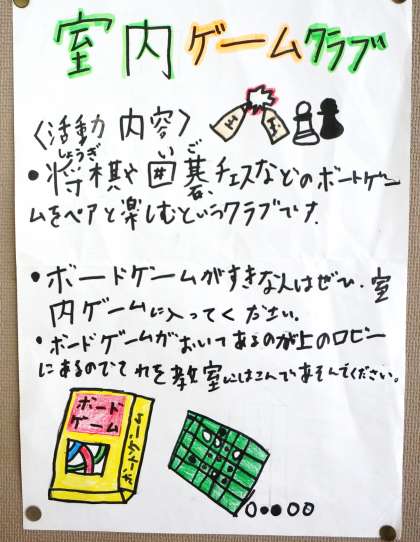 室内ゲームクラブ
〈活動内容〉
しょうぎ いご
・将棋や囲碁チェスなどのボードゲー
ムをペアと楽しむというクラブです。
・ボードゲームがすきな人はぜひ、室
内ゲームに入ってください。
・ボードゲームがおいてあるのが上のロビー
にあるのでそれを教室にはこんであそんでください。
ボード
ゲーム